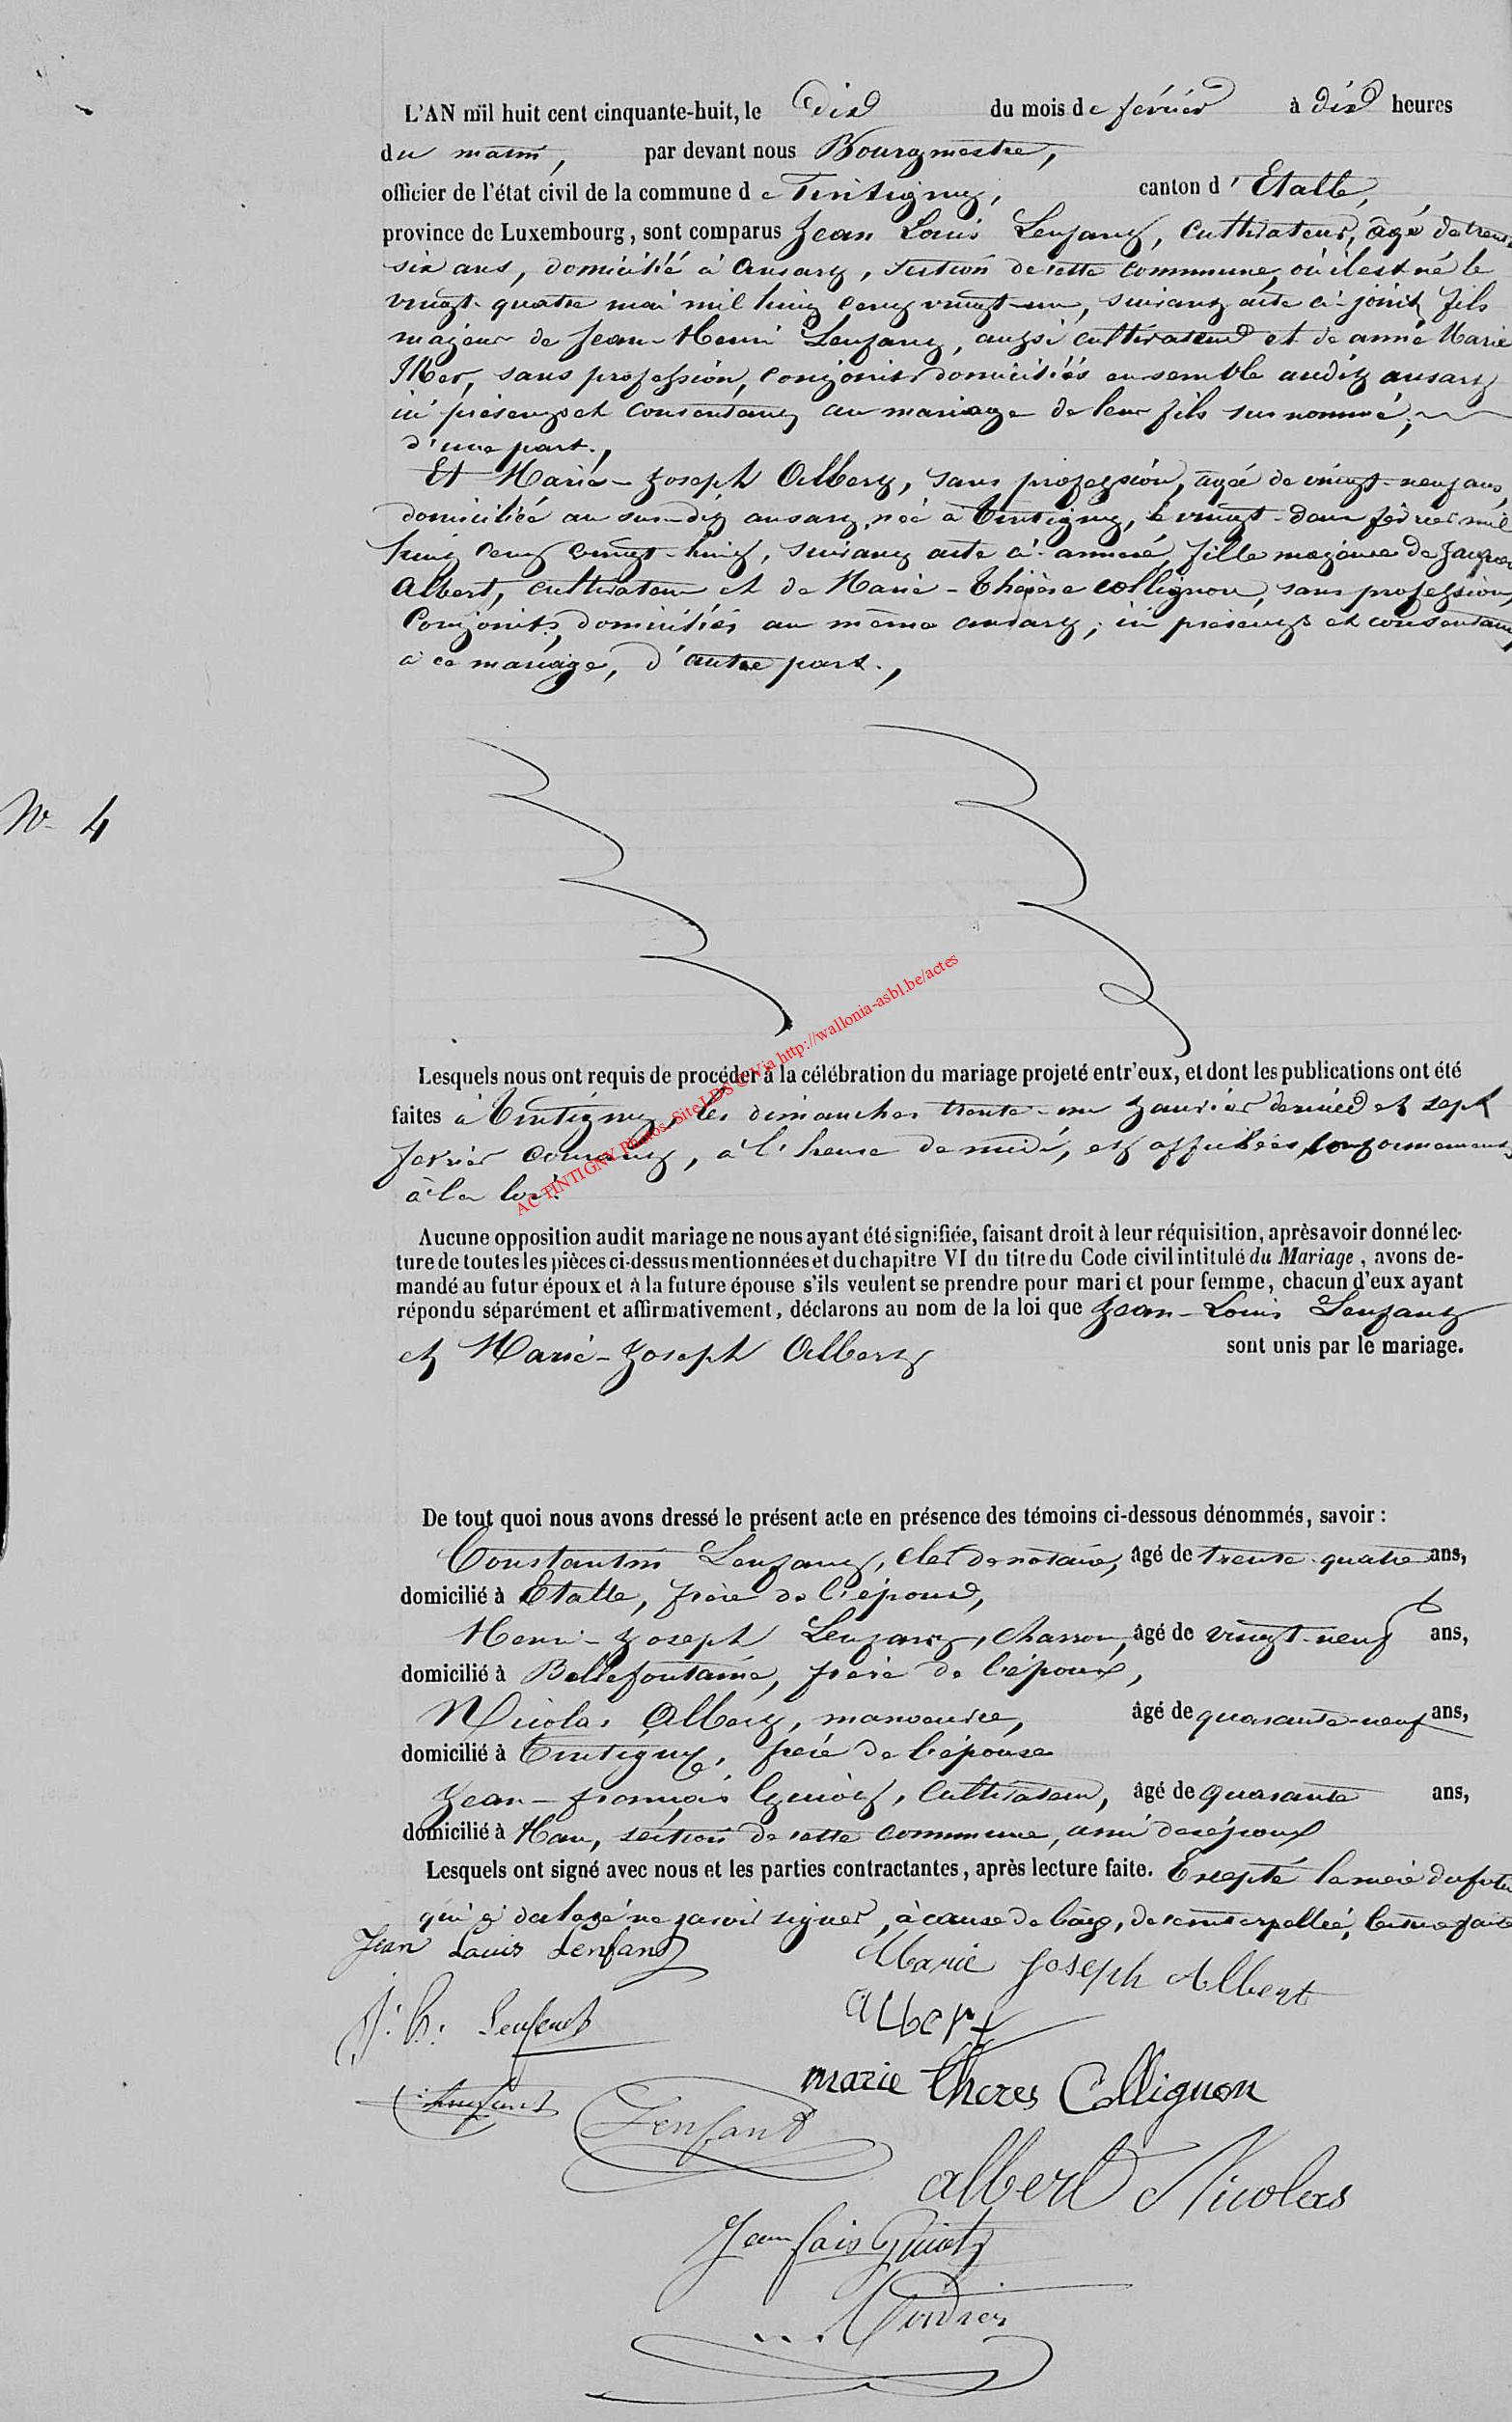 L'AN mil huit cent cinquante-huit, le dix du mois de février à dix heures
du matin, par devant nous Bourgmestre,
officier de l'état civil de la commune de Tintigny, canton d'Etalle,
province de Luxembourg, sont comparus Jean Louis Lenfant, cultivateur, âgé de trente
six ans, domicilié à Ansart, section de cette commune, où il est né le
vingt-quatre mai mil huit cent vingt-un, suivant acte ci-joint, fils
majeur de Jean-Henri Lenfant, aussi cultivateur et de anne Marie
sans profession, conjoints domiciliés ensemble audit ansart
ici présents et consentant au mariage de leur fils surnommé,
d'une part.,
Et Marie-Joseph Albert, sans profession, agée de vingt-neuf ans,
domiciliée au sus-dit ansart, née à Tintigny, le vingt-deux février mil
huit cent vingt-huit, suivant acte ci-annexé, fille majeure de Jacques
Albert, cultivateur et de Marie-Thérèse collignon, sans profession,
Conjoints, domiciliés au même ansart, ici présents et consentant
à ce mariage, d'autre part.,
N° 4
Lesquels nous ont requis de procéder à la célébration du mariage projeté entr'eux, et dont les publications ont été
faites à Tintigny, les dimanches trente-un Janvier dernier et sept
février courant, à l'heure de midi, et affichées conformément
à la loi.
AC TINTIGNY Photos Site LDS © Via http://wallonia-asbl.be/actes
Aucune opposition audit mariage ne nous ayant été signifiée, faisant droit à leur réquisition, après avoir donné lec-
ture de toutes les pièces ci-dessus mentionnées et du chapitre VI du titre du Code civil intitulé du Mariage, avons de-
mandé au futur époux et à la future épouse s'ils veulent se prendre pour mari et pour femme, chacun d'eux ayant
répondu séparément et affirmativement, déclarons au nom de la loi que Jean-Louis Lenfant
et Marie-Joseph Albert sont unis par le mariage.
De tout quoi nous avons dressé le présent acte en présence des témoins ci-dessous dénommés, savoir :
Constantin Lenfant, clerc de notaire, âgé de trente-quatre ans,
domicilié à Etalle, frère de l'époux,
Henri-Joseph Lenfant, charron, âgé de vingt-neuf ans,
domicilié à Bellefontaine, frère de l'époux,
Nicolas Albert, manoeuvre, âgé de quarante-neuf ans,
domicilié à Tintigny, frère de l'épouse
Jean-françois Guiot, Cultivateur, âgé de quarante ans,
domicilié à Han, section de cette commune, ami des époux
Lesquels ont signé avec nous et les parties contractantes, après lecture faite. Excepté la mère du futur
qui a déclaré ne savoir signer, à cause de l'âge, de ce interpellée, lecture faite
Jean Louis Lenfant
Marie Joseph Albert
J. h. Lenfant
Albert
marie theres Collignon
C. Lenfant
Lenfant
albert Nicolas
Jean fçois Guiot